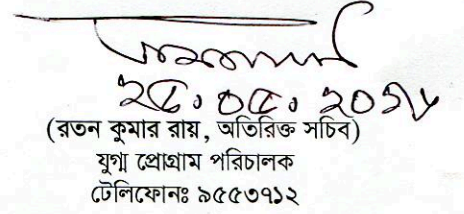 ২৫.০৫.২০১৮
(রতন কুমার রায়, অতিরিক্ত সচিব)
যুগ্ম প্রোগ্রাম পরিচালক
টেলিফোনঃ ৯৫৫৩৭১২